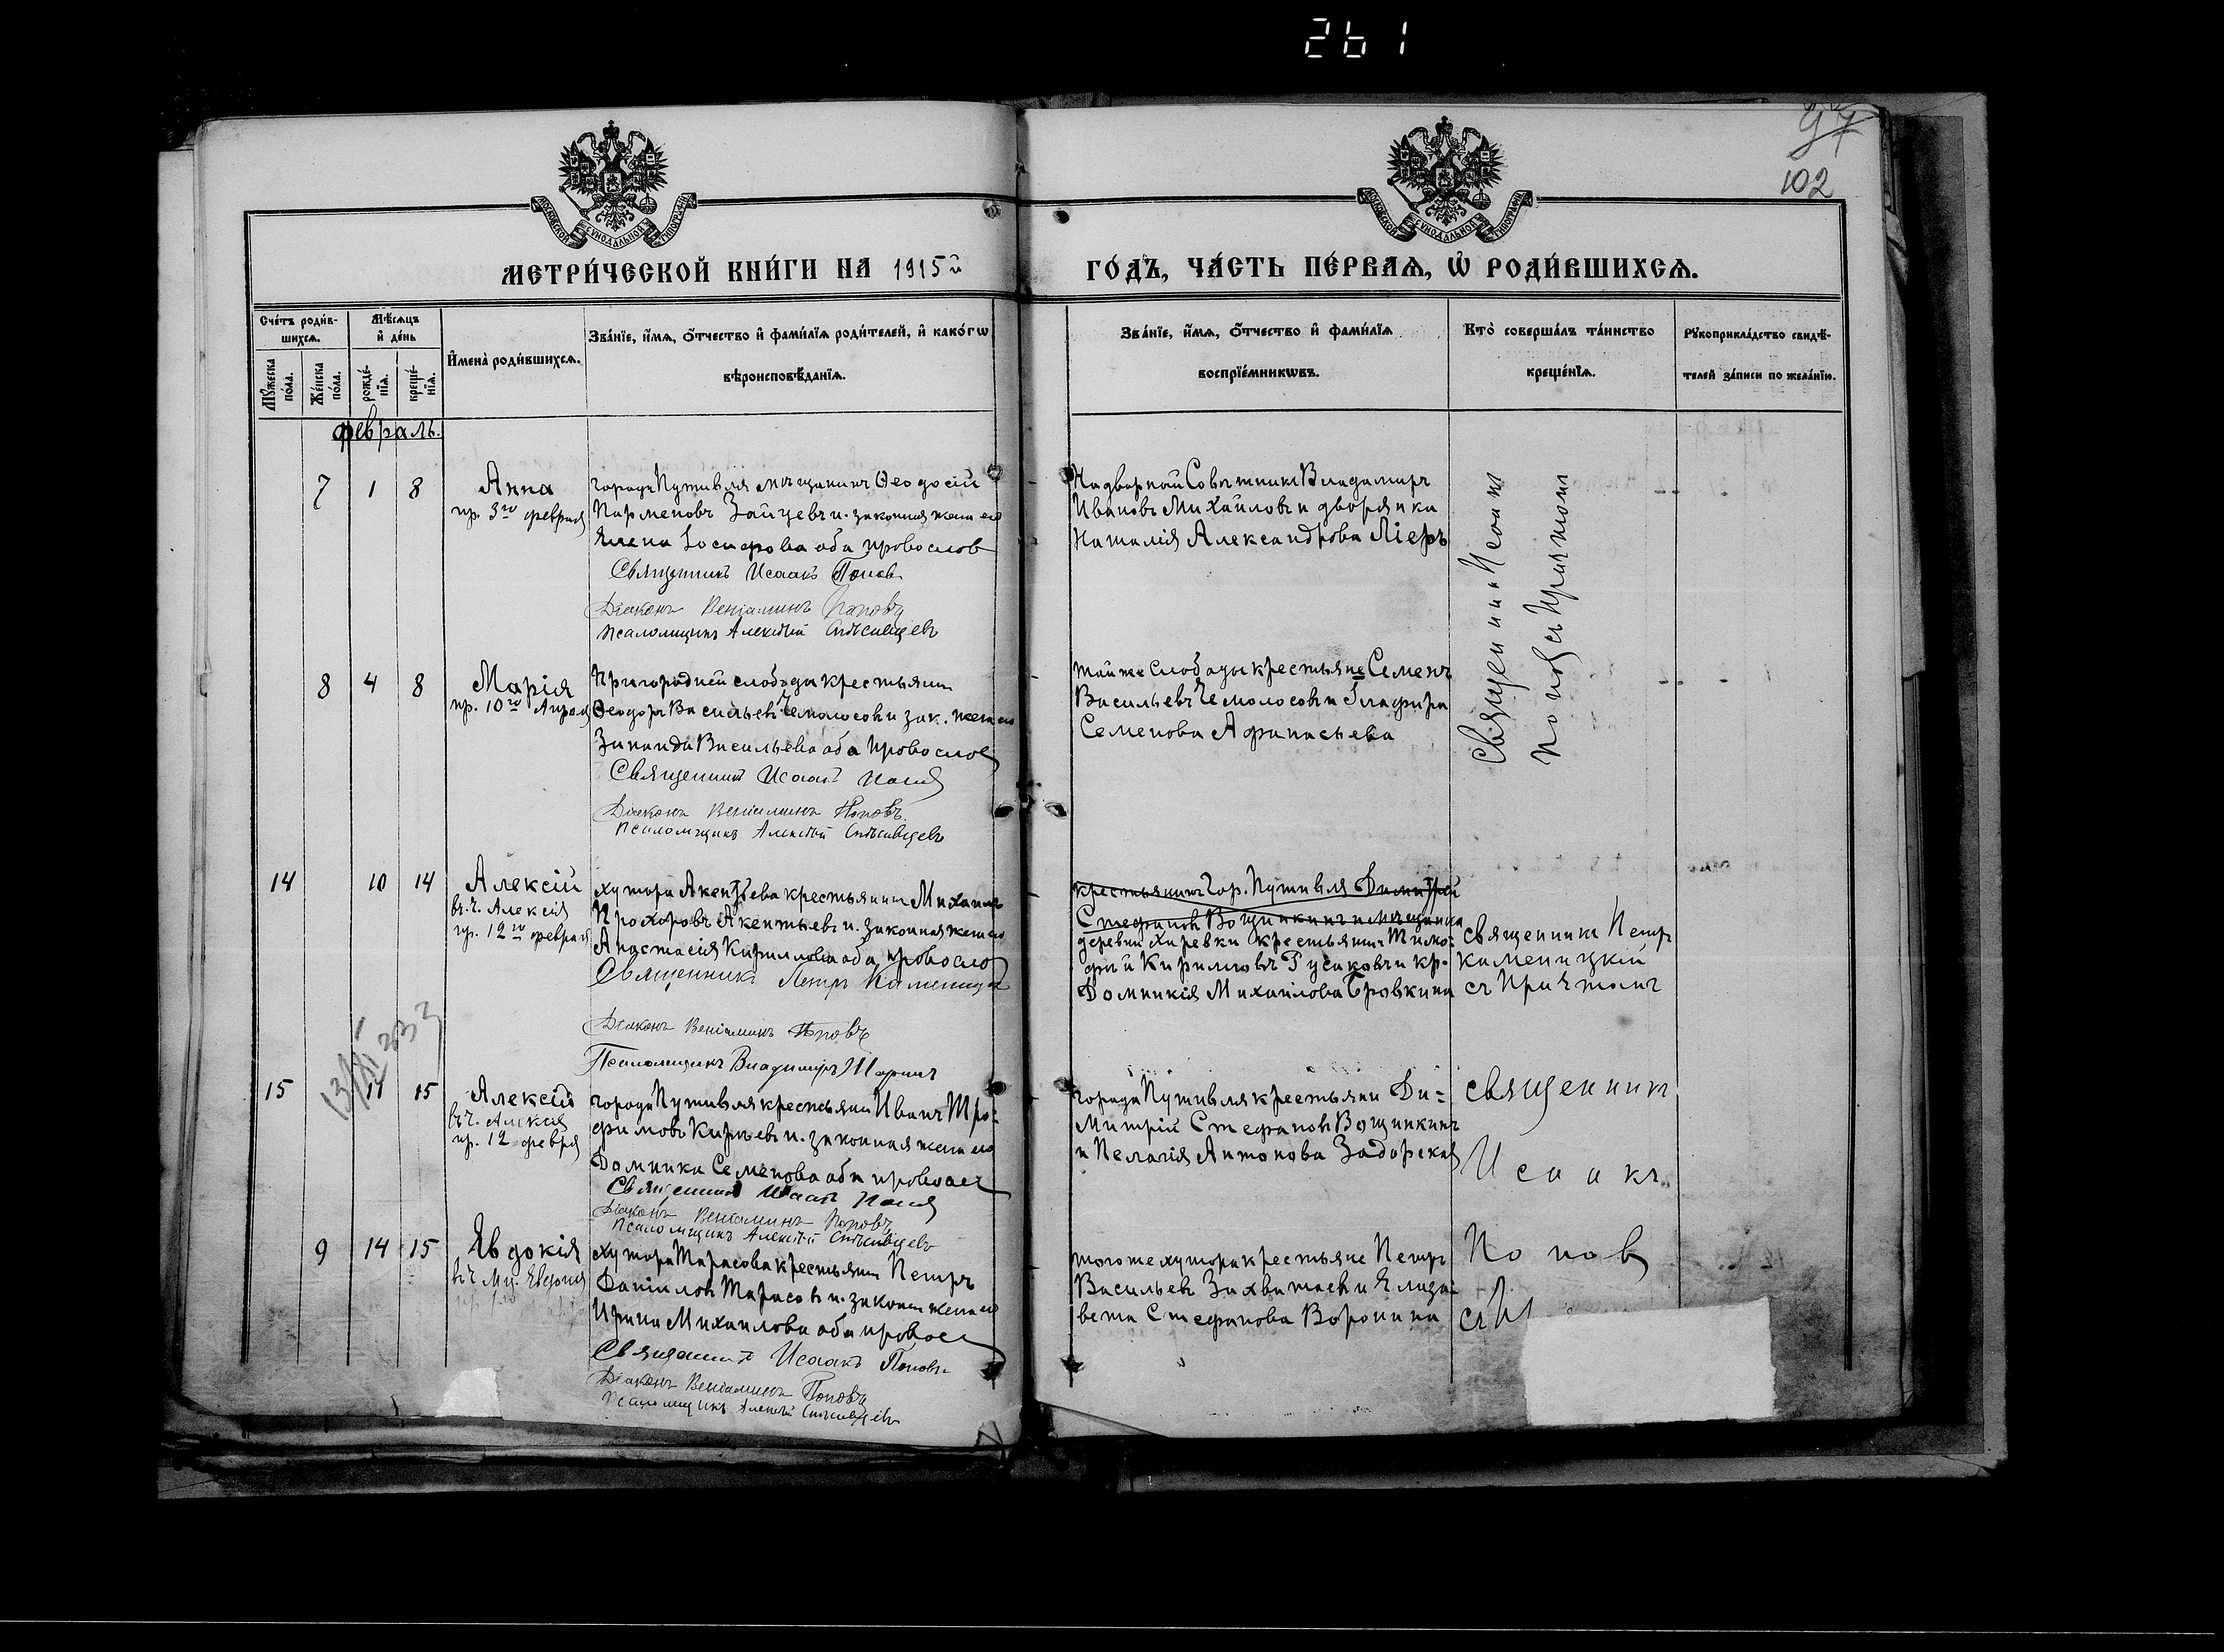 261
97
102
МОСКОВСКОЙ СѴНОДАЛЬНОЙ ТИПОГРАФІИ
МОСКОВСКОЙ СѴНОДАЛЬНОЙ ТИПОГРАФІИ
МЕТРИ́ЧЕСКОЙ КНИ́ГИ НА 1915й ГО́ДЪ, ЧА́СТЬ ПЕ́РВАѦ, Ѡ҆ РОДИ́ВШИХСѦ.
Сче́тъ роди́в-
шихсѧ.
Мѣ́сѧцъ
и҆ де́нь
Мꙋ́жеска
по́ла.
Же́нска
по́ла.
рожде́-
нїѧ.
креще́-
нїѧ.
И҆мена̀ роди́вшихсѧ.
Зва́нїе, и҆́мѧ, о҆́тчество и҆ фами́лїѧ роди́телей, и҆ како́гѡ
вѣроисповѣ́данїѧ.
Зва́нїе, и҆́мѧ, о҆́тчество и҆ фами́лїѧ
воспрїе́мникѡвъ.
Кто̀ соверша́лъ та́инство
креще́нїѧ.
Рꙋкоприкла́дство свидѣ́-
телей за́писи по жела́нїю.
февраль.
7 1 8
Анна
пр. 3го февраля
города Путивля мѣщанинъ Ѳеодосій
Парменовъ Зайцевъ и законная жена его
Елена Іосифова оба православ
Священникъ Исаакъ Попов
Діаконъ Веніаминъ Поповъ
Псаломщикъ Алексѣй Спѣсивцевъ
Надворный Совѣтникъ Владимиръ
Ивановъ Михайловъ и дворянка
Наталія Александрова Ліеръ
Священникъ Исаакъ
Поповъ съ Причтомъ
8 4 8
Марія
пр. 10го Апреля
Пригородней слободы крестьянин
Ѳеодоръ Васильевъ Чемолосовъ и зак. жена его
Зинаида Васильева оба православ
Священникъ Исаакъ Попов
Діаконъ Веніаминъ Поповъ
Псаломщикъ Алексѣй Спѣсивцевъ
той же Слободы крестьяне Семенъ
Васильевъ Чемолосовъ и Глафира
Семенова Афанасьева
14 10 14
Алексій
въ ч. Алексія
пр. 12го февраля
хутора Акентьева крестьянинъ Михаилъ
Прохоровъ Акентьевъ и законная жена его
Анастасія Кириллова оба православ
Священникъ Петръ Каменицк
Діаконъ Веніаминъ Поповъ
Псаломщикъ Владимиръ
крестьянинъ гор. Путивля Димитрій
Стефановъ Вощинкинъ и мѣщанка
деревни Хиревки крестьянинъ Тимо-
фей Кирилловъ Гусаковъ и кр.
Домникія Михаилова Бровкина
священникъ Петръ
Каменицкій
съ Причтомъ
15 11 15
Алексій
въ ч. Алексія
пр. 12 февраля
города Путивля крестьянин Иванъ Тро-
фимовъ Кирѣевъ и законная жена его
Домника Семенова оба правосл
Священникъ Исаакъ Попов
Діаконъ Веніаминъ Поповъ
Псаломщикъ Алексѣй Спѣсивцевъ
города Путивля крестьяни Ди-
митрій Стефановъ Вощинкинъ
и Пелагія Антонова Задорская
священникъ
Исаакъ
9 14 15
Евдокія
въ ч. Мц. Евдокіи
хутора Тарасова крестьянин Петръ
Даніиловъ Тарасовъ и законн жена его
Ирина Михаилова оба правосл
Священникъ Исаакъ Поповъ
Діаконъ Веніаминъ Поповъ
Псаломщикъ Алексѣй Спѣсивцевъ
того же хутора крестьяне Петръ
Васильевъ Захватаевъ и Елиза-
вета Стефанова Воронина
Попов
съ